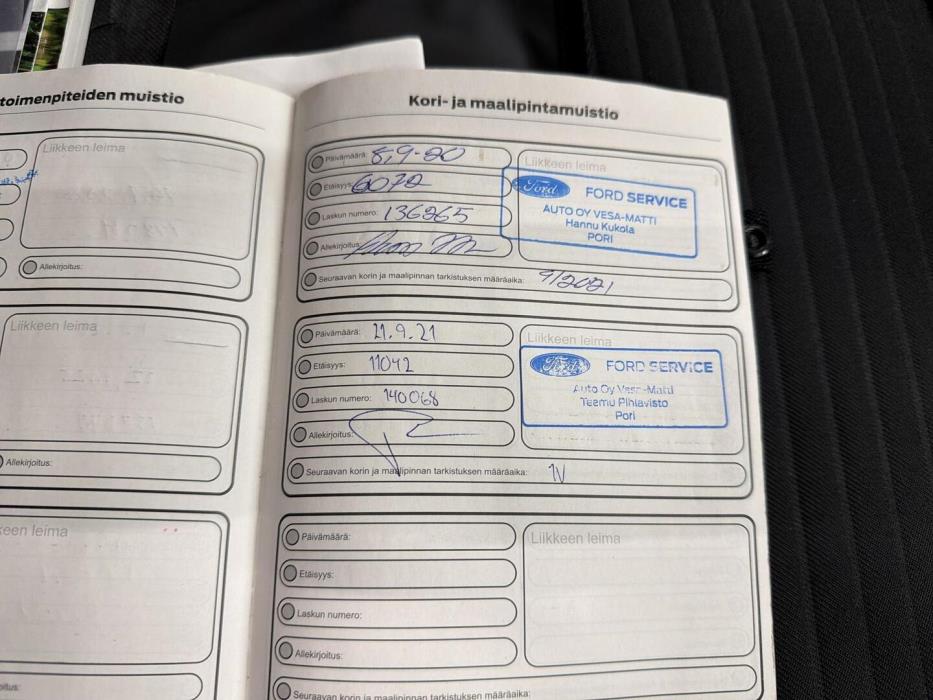 toimenpiteiden muistio
Liikkeen leima
Allekirjoitus:
Liikkeen leima
Allekirjoitus:
keen leima
Kori- ja maalipintamuistio
Päivämäärä: 8,9-20
Etäisyys: 6072
Laskun numero: 136265
Allekirjoitus:
Liikkeen leima
Ford FORD SERVICE
AUTO OY VESA-MATTI
Hannu Kukola
PORI
Seuraavan korin ja maalipinnan tarkistuksen määräaika: 9/2021
Päivämäärä: 21.9.21
Etäisyys: 11042
Laskun numero: 140068
Allekirjoitus:
Liikkeen leima
Ford FORD SERVICE
Auto Oy Vesa-Matti
Teemu Pihlavisto
Pori
Seuraavan korin ja maalipinnan tarkistuksen määräaika: 1V
Päivämäärä:
Etäisyys:
Laskun numero:
Allekirjoitus:
Liikkeen leima
Seuraavan korin ja maalipinnan tarkistuksen määräaika: